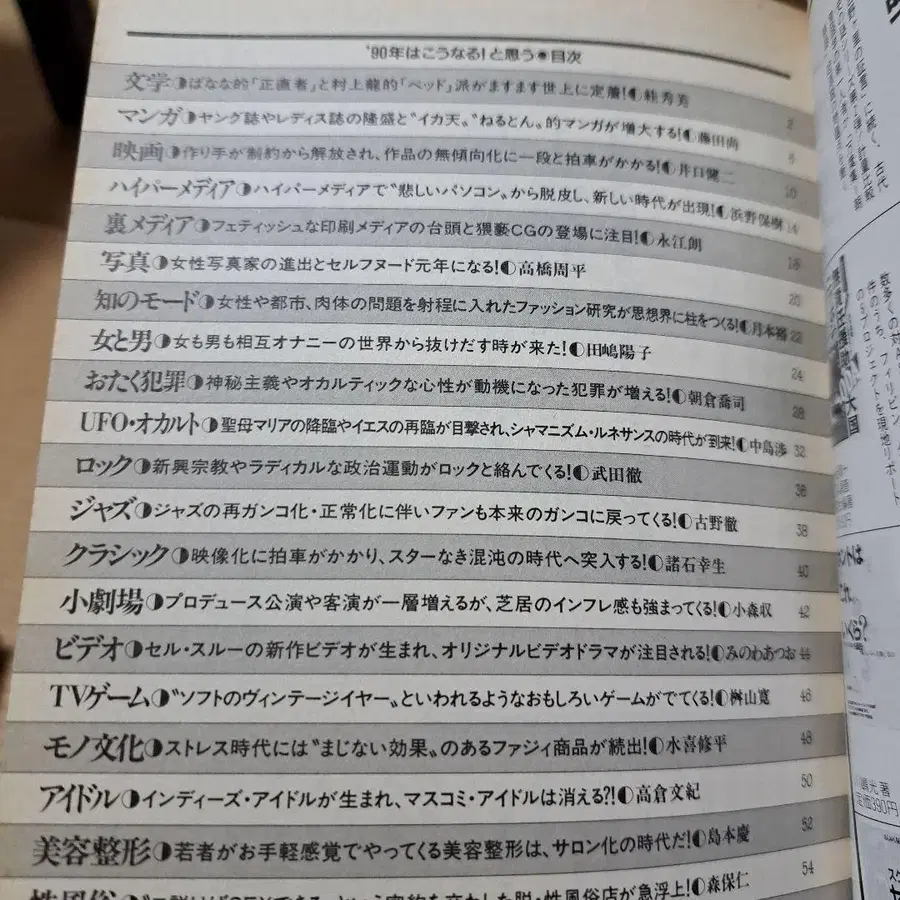 '90年はこうなる!と思う●目次
文学◑ばなな的「正直者」と村上龍的「ベッド」派がますます世上に定着!◐絓秀実
2
マンガ◑ヤング誌やレディス誌の隆盛と〝イカ天〟〝ねるとん〟的マンガが増大する!◐藤田尚
6
映画◑作り手が制約から解放され、作品の無傾向化に一段と拍車がかかる!◐井口健二
10
ハイパーメディア◑ハイパーメディアで〝悲しいパソコン〟から脱皮し、新しい時代が出現!◐浜野保樹
14
裏メディア◑フェティッシュな印刷メディアの台頭と猥褻CGの登場に注目!◐永江朗
18
写真◑女性写真家の進出とセルフヌード元年になる!◐高橋周平
20
知のモード◑女性や都市、肉体の問題を射程に入れたファッション研究が思想界に柱をつくる!◐月本裕
22
女と男◑女も男も相互オナニーの世界から抜けだす時が来た!◐田嶋陽子
24
おたく犯罪◑神秘主義やオカルティックな心性が動機になった犯罪が増える!◐朝倉喬司
28
UFO・オカルト◑聖母マリアの降臨やイエスの再臨が目撃され、シャマニズム・ルネサンスの時代が到来!◐中島渉
32
ロック◑新興宗教やラディカルな政治運動がロックと絡んでくる!◐武田徹
36
ジャズ◑ジャズの再ガンコ化・正常化に伴いファンも本来のガンコに戻ってくる!◐古野徹
38
クラシック◑映像化に拍車がかかり、スターなき混沌の時代へ突入する!◐諸石幸生
40
小劇場◑プロデュース公演や客演が一層増えるが、芝居のインフレ感も強まってくる!◐小森収
42
ビデオ◑セル・スルーの新作ビデオが生まれ、オリジナルビデオドラマが注目される!◐みのわあつお
44
TVゲーム◑〝ソフトのヴィンテージイヤー〟といわれるようなおもしろいゲームがでてくる!◐桝山寛
46
モノ文化◑ストレス時代には〝まじない効果〟のあるファジィ商品が続出!◐水喜修平
48
アイドル◑インディーズ・アイドルが生まれ、マスコミ・アイドルは消える?!◐高倉文紀
50
美容整形◑若者がお手軽感覚でやってくる美容整形は、サロン化の時代だ!◐島本慶
52
性風俗
脱・性風俗店が急浮上!◐森保仁
54
に続く、古代
数多くの対
件のうち、フィリピン
のプロジェクトを現地リポート
大国
くら?
光著
定価390円